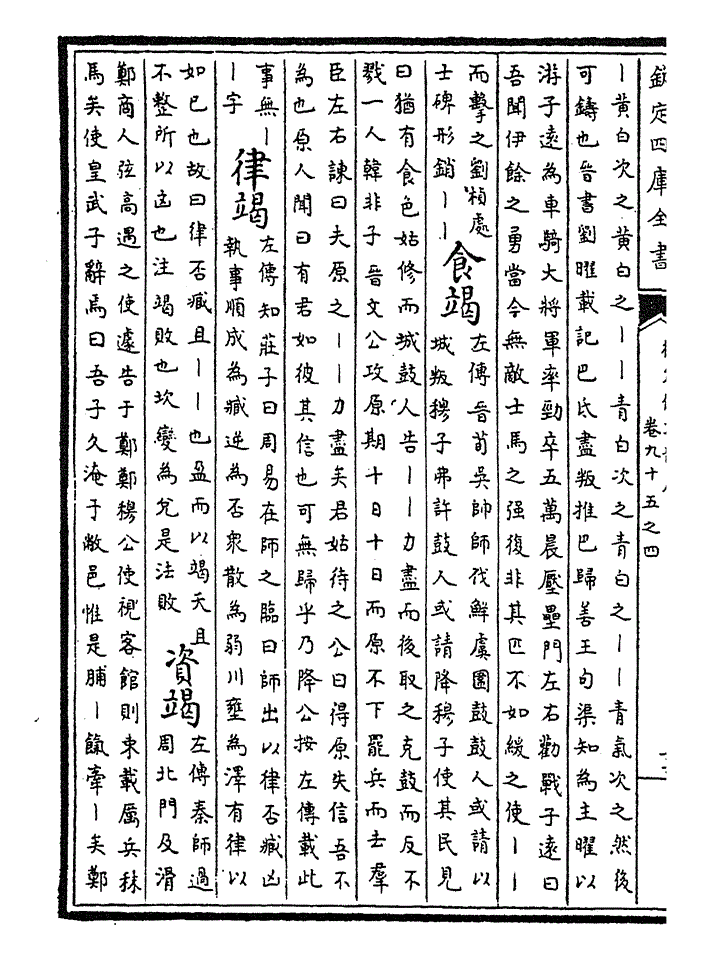 欽定四庫全書
卷九十五之四
丨黄白次之黄白之丨丨青白次之青白之丨丨青氣次之然後
可鑄也晉書劉曜載記巴氐盡叛推巴歸善王句渠知為主曜以
游子遠為車騎大將軍率勁卒五萬晨壓壘門左右勸戰子遠曰
吾聞伊餘之勇當今無敵士馬之强復非其匹不如緩之使丨丨
而擊之劉楨處
士碑形銷丨丨
食竭
左傳晉荀吳帥師伐鮮虞圍鼓鼓人或請以
城叛穆子弗許鼓人或請降穆子使其民見
曰猶有食色姑修而城鼓人告丨丨力盡而後取之克鼓而反不
戮一人韓非子晉文公攻原期十日十日而原不下罷兵而去羣
臣左右諫曰夫原之丨丨力盡矣君姑待之公曰得原失信吾不
為也原人聞曰有君如彼其信也可無歸乎乃降公按左傳載此
事無丨
丨字
律竭
左傳知莊子曰周易在師之臨曰師出以律否臧凶
執事順成為臧逆為否衆散為弱川壅為澤有律以
如已也故曰律否臧且丨丨也盈而以竭夭且
不整所以凶也注竭敗也坎變為兌是法敗
資竭
左傳秦師過
周北門及滑
鄭商人弦高遇之使遽告于鄭鄭穆公使視客館則束載厲兵秣
馬矣使皇武子辭焉曰吾子久淹于敝邑惟是脯丨餼牽丨矣鄭